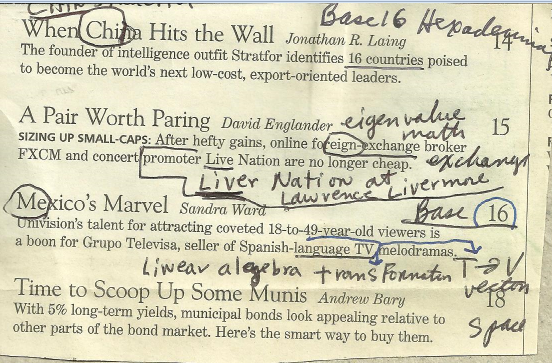 Base16 Hexadecimal
When China Hits the Wall Jonathan R. Laing 14
The founder of intelligence outfit Stratfor identifies 16 countries poised
to become the world's next low-cost, export-oriented leaders.
A Pair Worth Paring David Englander 15
eigenvalue
math
SIZING UP SMALL-CAPS: After hefty gains, online foreign-exchange broker
exchange
FXCM and concert promoter Live Nation are no longer cheap.
Liver Nation at
Lawrence Livermore
Mexico's Marvel Sandra Ward 16
Base
Univision's talent for attracting coveted 18-to-49-year-old viewers is
a boon for Grupo Televisa, seller of Spanish-language TV melodramas.
Linear alegebra transformation T→V
vectors
Space
Time to Scoop Up Some Munis Andrew Bary 18
With 5% long-term yields, municipal bonds look appealing relative to
other parts of the bond market. Here's the smart way to buy them.